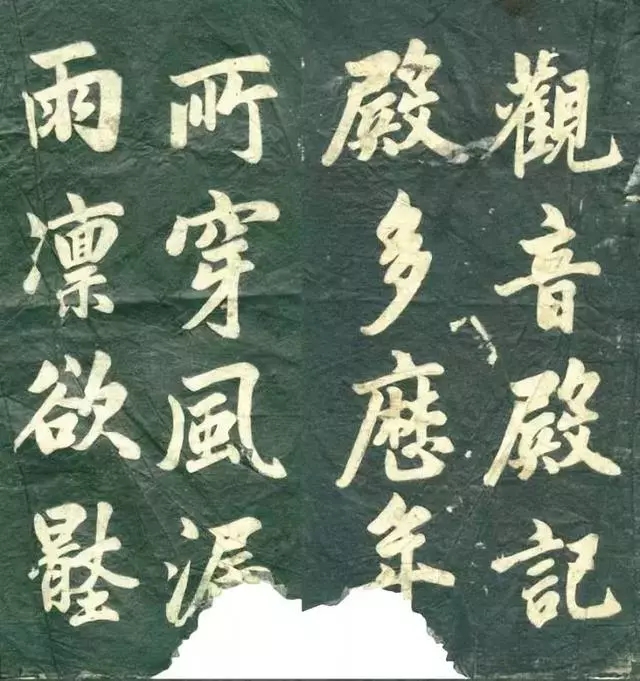 觀音殿記
殿多歷年
所穿風漏
雨凜欲